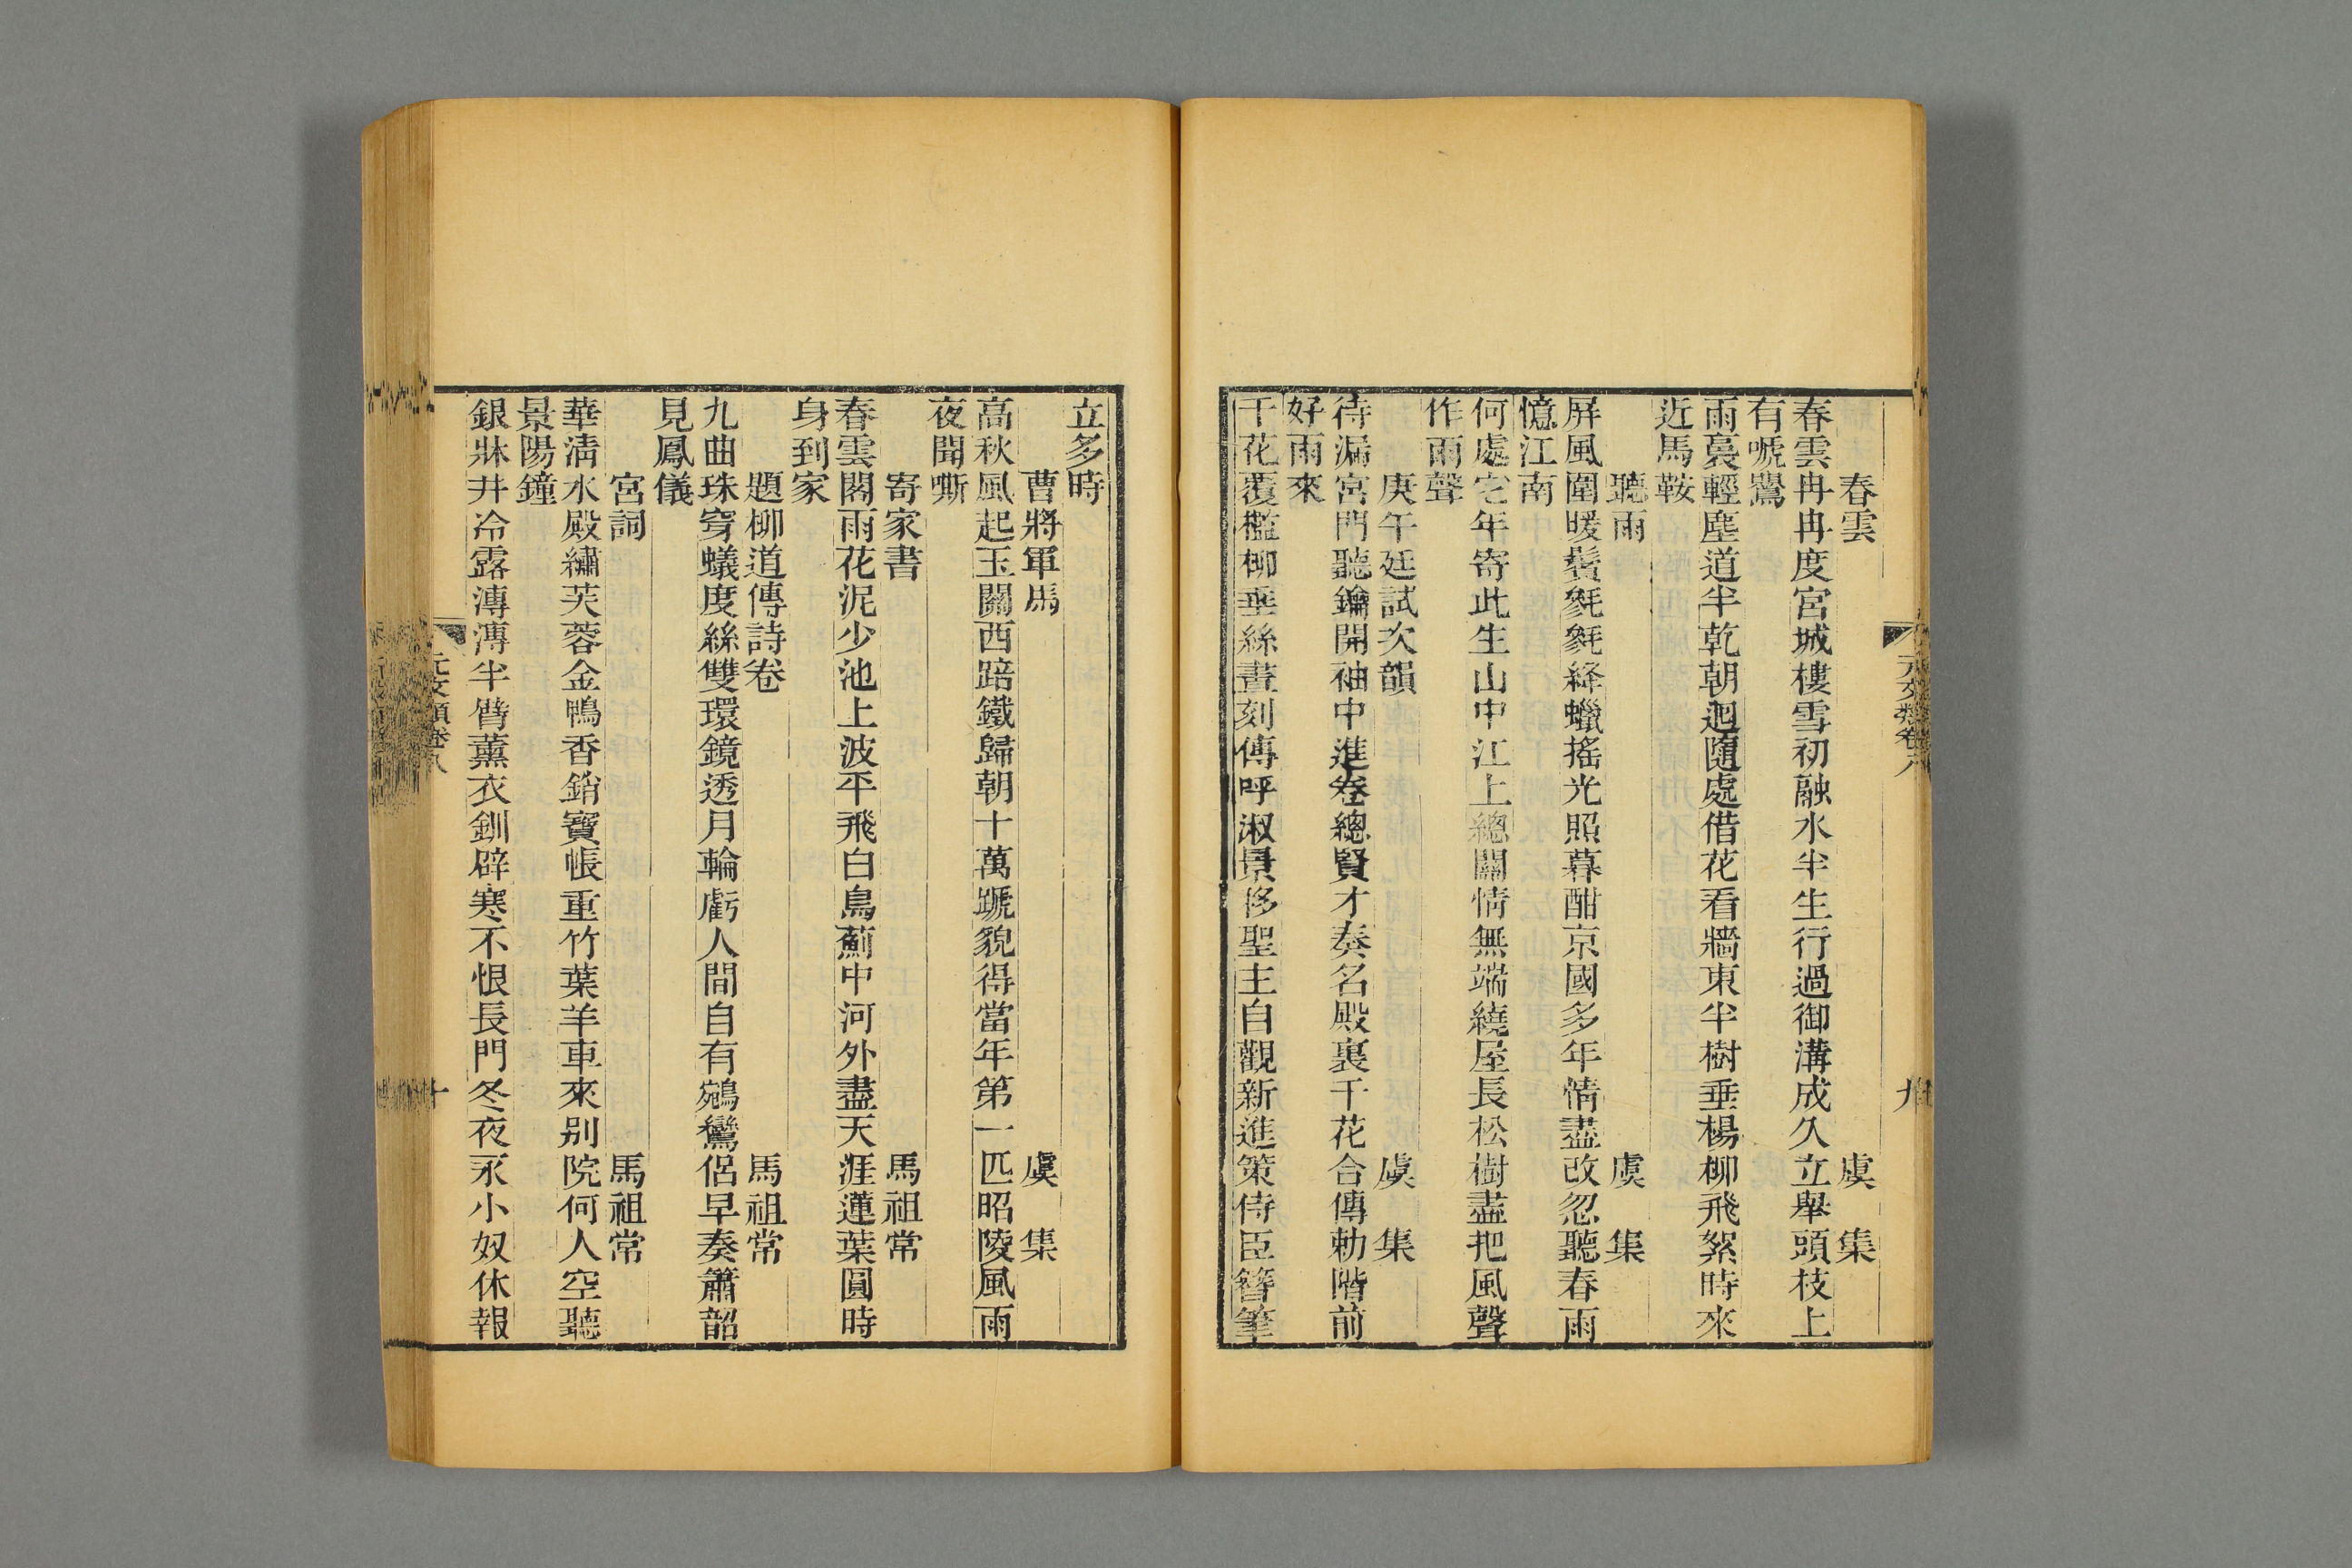 春雲 虞集
春雲冉冉度宮城樓雪初融水半生行過御溝成久立舉頭枝上
有嗁鶯
雨裛輕塵道半乾朝迴隨處借花看牆東半樹垂楊柳飛絮時來
近馬鞍
聽雨 虞集
屏風圍暖鬢毿毿絳蠟搖光照暮酣京國多年情盡改忽聽春雨
憶江南
何處它年寄此生山中江上總關情無端繞屋長松樹盡把風聲
作雨聲
庚午廷試次韻 虞集
待漏宮門聽鑰開袖中進卷總賢才奏名殿裏千花合傳勅階前
好雨來
千花覆檻柳垂絲晝刻傳呼淑景移聖主自觀新進策侍臣簪筆
元文類卷八
九
立多時
曹將軍馬 虞集
高秋風起玉關西踣鐵歸朝十萬蹏貌得當年第一匹昭陵風雨
夜聞嘶
寄家書 馬祖常
春雲閣雨花泥少池上波平飛白鳥薊中河外盡天涯蓮葉圓時
身到家
題柳道傳詩卷 馬祖常
九曲珠穿蟻度絲雙環鏡透月輪虧人間自有鵷鸞侶早奏簫韶
見鳳儀
宮詞 馬祖常
華清水殿繡芙蓉金鴨香銷寶帳重竹葉羊車來別院何人空聽
景陽鐘
銀牀井冷露漙漙半臂薰衣釧辟寒不恨長門冬夜永小奴休報
元文類卷八
十